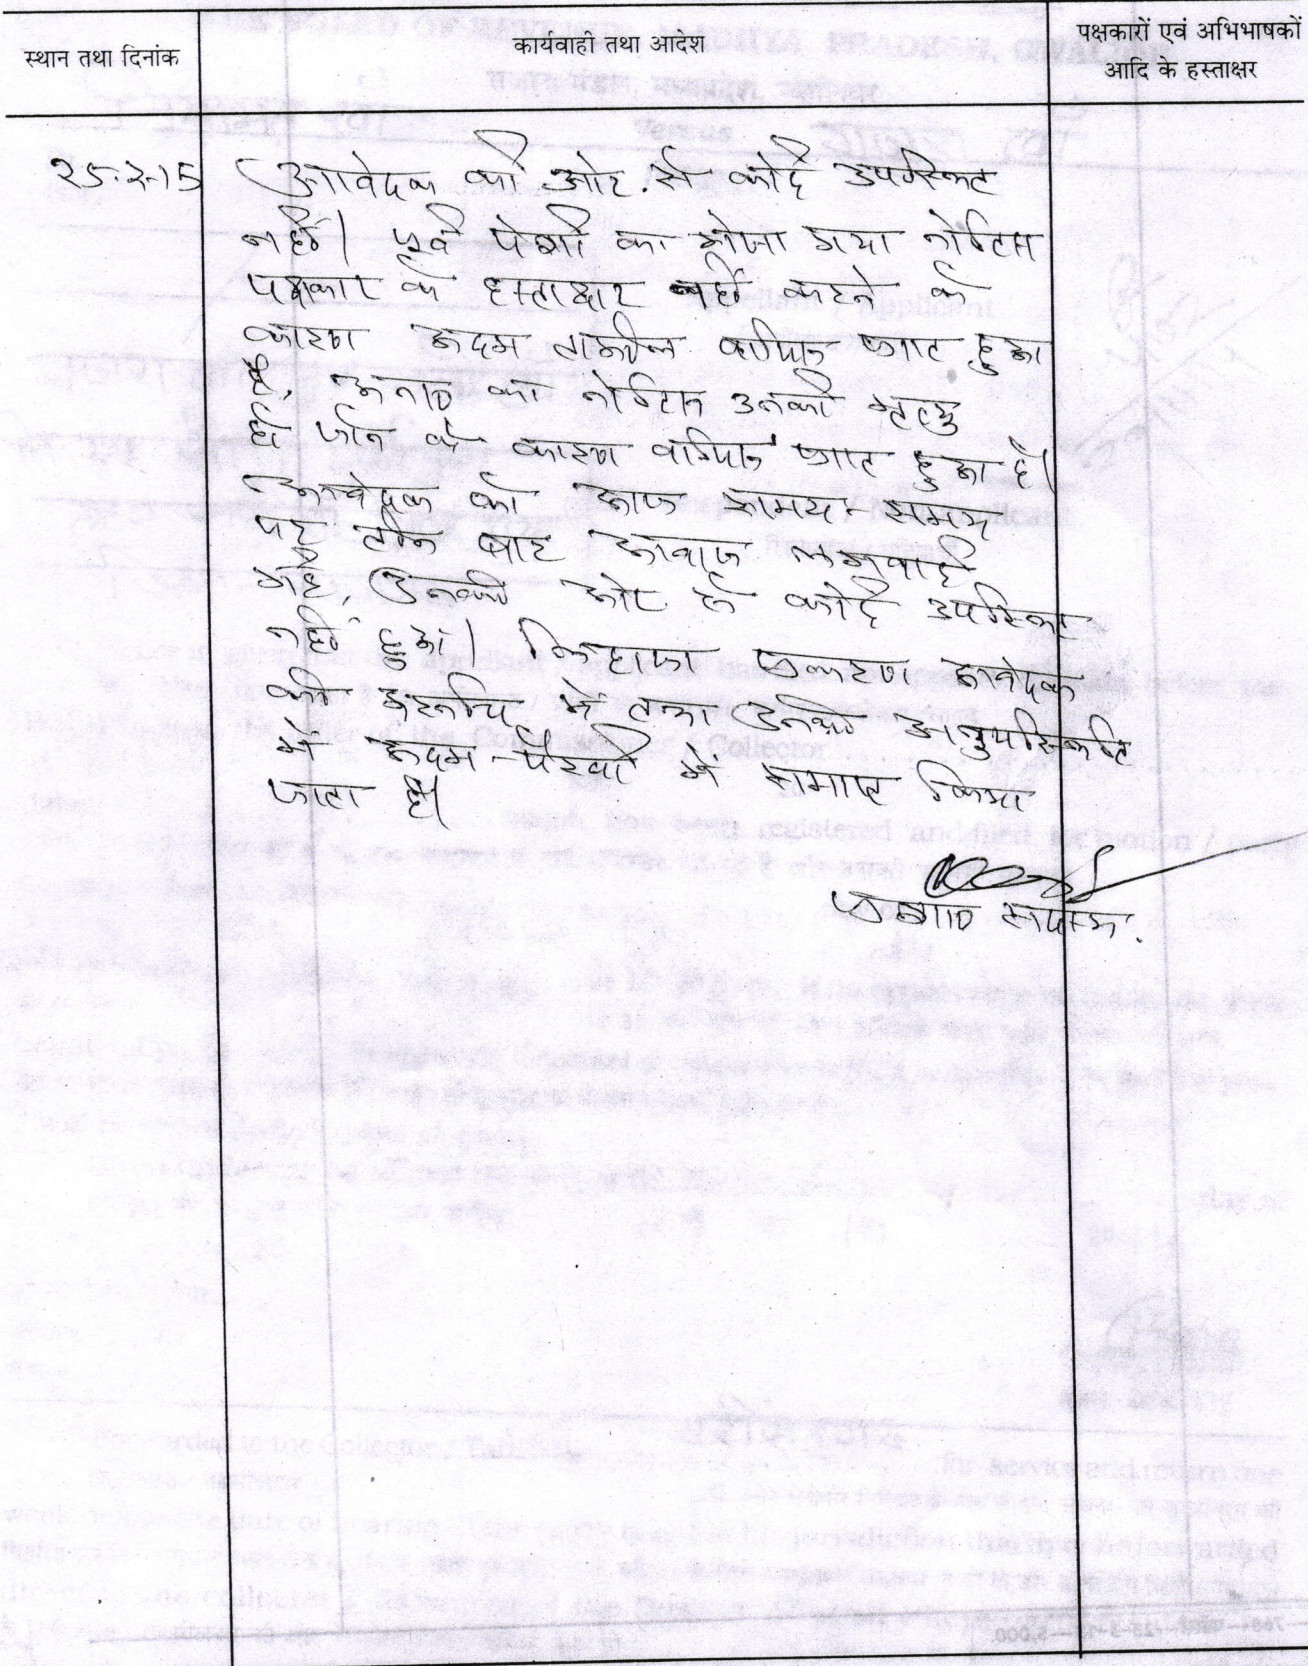 स्थान तथा दिनांक
कार्यवाही तथा आदेश
पक्षकारों एवं अभिभाषकों
आदि के हस्ताक्षर
25.2.15
आवेदक की ओर से कोई उपस्थित
नहीं। पूर्व पेशी का भेजा गया नोटिस
पक्षकार के हस्ताक्षर नहीं करने के
कारण अदम तामील वापिस प्राप्त हुआ
है, अनाo का नोटिस उनकी मृत्यु
हो जाने के कारण वापिस प्राप्त हुआ है।
आवेदक को आज समय-समय
पर तीन बार आवाज लगवाई
गई, उनकी ओर से कोई उपस्थित
नहीं हुआ। लिहाजा प्रकरण आवेदक
की अरूचि में तथा उनकी अनुपस्थिति
में अदम-पैरवी में समाप्त किया
जाता है।
प्रशाo सदस्य.